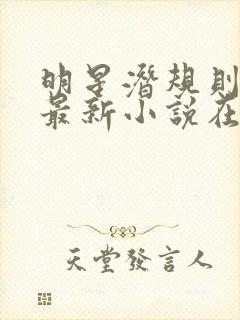 明星潛規則
最新小說在
天堂發言人